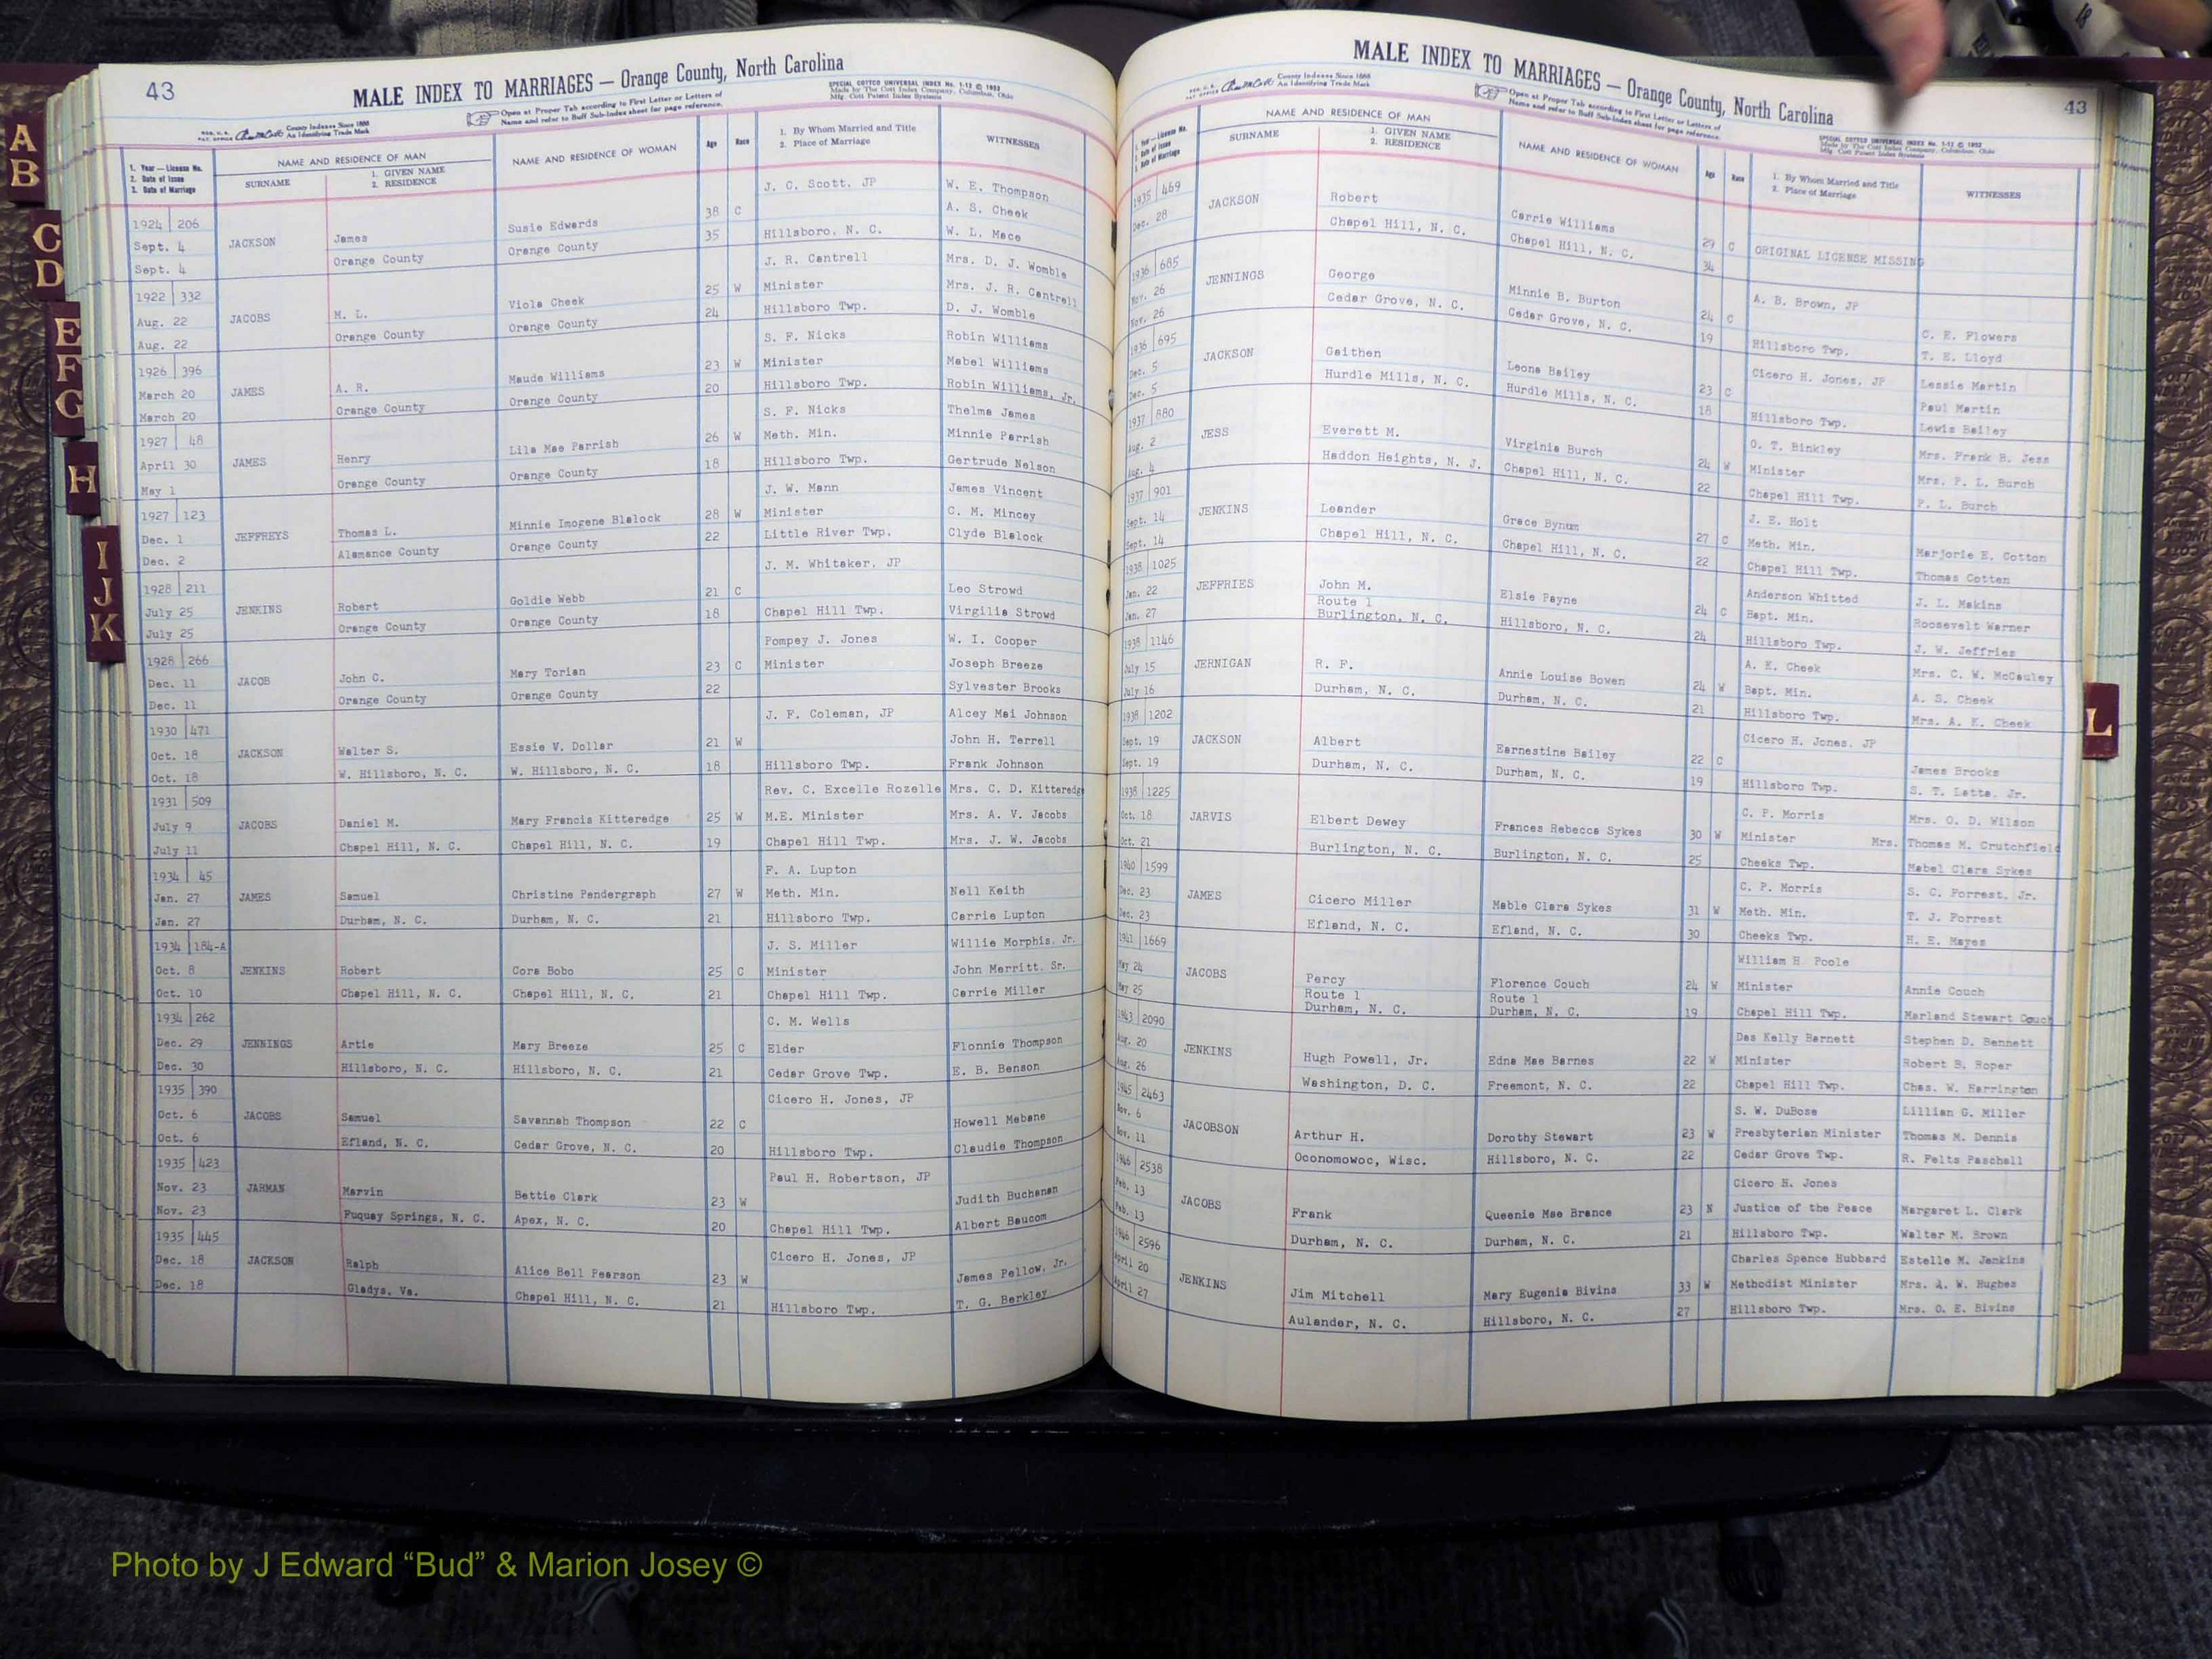 43
MALE INDEX TO MARRIAGES — Orange County, North Carolina
SPECIAL COTTCO UNIVERSAL INDEX No. 1-12 © 1952
Made by The Cott Index Company, Columbus, Ohio
Mfg. Cott Patent Index Systems
County Indexes Since 1888
An Identifying Trade Mark
Open at Proper Tab according to First Letter or Letters of
Name and refer to Buff Sub-Index sheet for page reference.
1. Year — License No.
2. Date of Issue
3. Date of Marriage
NAME AND RESIDENCE OF MAN
SURNAME
1. GIVEN NAME
2. RESIDENCE
NAME AND RESIDENCE OF WOMAN
Age
Race
1. By Whom Married and Title
2. Place of Marriage
WITNESSES
1924 206 J. C. Scott, JP W. E. Thompson
Sept. 4 JACKSON James Susie Edwards 38 C A. S. Cheek
Sept. 4 Orange County Orange County 35 Hillsboro, N. C. W. L. Mace
1922 332 J. R. Cantrell Mrs. D. J. Womble
Aug. 22 JACOBS M. L. Viola Cheek 25 W Minister Mrs. J. R. Cantrell
Aug. 22 Orange County Orange County 24 Hillsboro Twp. D. J. Womble
1926 396 S. F. Nicks Robin Williams
March 20 JAMES A. R. Maude Williams 23 W Minister Mabel Williams
March 20 Orange County Orange County 20 Hillsboro Twp. Robin Williams, Jr.
1927 48 S. F. Nicks Thelma James
April 30 JAMES Henry Lila Mae Parrish 26 W Meth. Min. Minnie Parrish
May 1 Orange County Orange County 18 Hillsboro Twp. Gertrude Nelson
1927 123 J. W. Mann James Vincent
Dec. 1 JEFFREYS Thomas L. Minnie Imogene Blalock 28 W Minister C. M. Mincey
Dec. 2 Alamance County Orange County 22 Little River Twp. Clyde Blalock
1928 211 J. M. Whitaker, JP
July 25 JENKINS Robert Goldie Webb 21 C Leo Strowd
July 25 Orange County Orange County 18 Chapel Hill Twp. Virgilia Strowd
1928 266 Pompey J. Jones W. I. Cooper
Dec. 11 JACOB John C. Mary Torian 23 C Minister Joseph Breeze
Dec. 11 Orange County Orange County 22 Sylvester Brooks
1930 471 J. F. Coleman, JP Alcey Mai Johnson
Oct. 18 JACKSON Walter S. Essie V. Dollar 21 W John H. Terrell
Oct. 18 W. Hillsboro, N. C. W. Hillsboro, N. C. 18 Hillsboro Twp. Frank Johnson
1931 509 Rev. C. Excelle Rozelle Mrs. C. D. Kitteredge
July 9 JACOBS Daniel M. Mary Francis Kitteredge 25 W M.E. Minister Mrs. A. V. Jacobs
July 11 Chapel Hill, N. C. Chapel Hill, N. C. 19 Chapel Hill Twp. Mrs. J. W. Jacobs
1934 45 F. A. Lupton
Jan. 27 JAMES Samuel Christine Pendergraph 27 W Meth. Min. Nell Keith
Jan. 27 Durham, N. C. Durham, N. C. 21 Hillsboro Twp. Carrie Lupton
1934 184-A J. S. Miller Willie Morphis, Jr.
Oct. 8 JENKINS Robert Cora Bobo 25 C Minister John Merritt, Sr.
Oct. 10 Chapel Hill, N. C. Chapel Hill, N. C. 21 Chapel Hill Twp. Carrie Miller
1934 262 C. M. Wells
Dec. 29 JENNINGS Artie Mary Breeze 25 C Elder Flonnie Thompson
Dec. 30 Hillsboro, N. C. Hillsboro, N. C. 21 Cedar Grove Twp. E. B. Benson
1935 390 Cicero H. Jones, JP
Oct. 6 JACOBS Samuel Savannah Thompson 22 C Howell Mebane
Oct. 6 Efland, N. C. Cedar Grove, N. C. 20 Hillsboro Twp. Claudie Thompson
1935 423 Paul H. Robertson, JP
Nov. 23 JARMAN Marvin Bettie Clark 23 W Judith Buchanan
Nov. 23 Fuquay Springs, N. C. Apex, N. C. 20 Chapel Hill Twp. Albert Baucom
1935 445 Cicero H. Jones, JP
Dec. 18 JACKSON Ralph Alice Bell Pearson 23 W James Pellow, Jr.
Dec. 18 Gladys, Va. Chapel Hill, N. C. 21 Hillsboro Twp. T. G. Berkley
MALE INDEX TO MARRIAGES — Orange County, North Carolina
43
County Indexes Since 1888
An Identifying Trade Mark
Open at Proper Tab according to First Letter or Letters of
Name and refer to Buff Sub-Index sheet for page reference.
SPECIAL COTTCO UNIVERSAL INDEX No. 1-12 © 1952
Made by The Cott Index Company, Columbus, Ohio
Mfg. Cott Patent Index Systems
1. Year — License No.
2. Date of Issue
3. Date of Marriage
NAME AND RESIDENCE OF MAN
SURNAME
1. GIVEN NAME
2. RESIDENCE
NAME AND RESIDENCE OF WOMAN
Age
Race
1. By Whom Married and Title
2. Place of Marriage
WITNESSES
1935 469
Dec. 28 JACKSON Robert Carrie Williams 29 C ORIGINAL LICENSE MISSING
Chapel Hill, N. C. Chapel Hill, N. C. 34
1936 685 A. B. Brown, JP
Nov. 26 JENNINGS George Minnie B. Burton 24 C C. E. Flowers
Nov. 26 Cedar Grove, N. C. Cedar Grove, N. C. 19 Hillsboro Twp. T. E. Lloyd
1936 695 Cicero H. Jones, JP Lessie Martin
Dec. 5 JACKSON Gaithen Leona Bailey 23 C Paul Martin
Dec. 5 Hurdle Mills, N. C. Hurdle Mills, N. C. 18 Hillsboro Twp. Lewis Bailey
1937 880 O. T. Binkley Mrs. Frank B. Jess
Aug. 2 JESS Everett M. Virginia Burch 24 W Minister Mrs. P. L. Burch
Aug. 4 Haddon Heights, N. J. Chapel Hill, N. C. 22 Chapel Hill Twp. P. L. Burch
1937 901 J. E. Holt
Sept. 14 JENKINS Leander Grace Bynum 27 C Meth. Min. Marjorie E. Cotton
Sept. 14 Chapel Hill, N. C. Chapel Hill, N. C. 22 Chapel Hill Twp. Thomas Cotten
1938 1025 Anderson Whitted J. L. Makins
Jan. 22 JEFFRIES John M. Elsie Payne 24 C Bapt. Min. Roosevelt Warner
Jan. 27 Route 1
Burlington, N. C. Hillsboro, N. C. 24 Hillsboro Twp. J. W. Jeffries
1938 1146 A. K. Cheek Mrs. C. W. McCauley
July 15 JERNIGAN R. F. Annie Louise Bowen 24 W Bapt. Min. A. S. Cheek
July 16 Durham, N. C. Durham, N. C. 21 Hillsboro Twp. Mrs. A. K. Cheek
1938 1202 Cicero H. Jones, JP
Sept. 19 JACKSON Albert Earnestine Bailey 22 C James Brooks
Sept. 19 Durham, N. C. Durham, N. C. 19 Hillsboro Twp. S. T. Latta, Jr.
1938 1225 C. P. Morris Mrs. O. D. Wilson
Oct. 18 JARVIS Elbert Dewey Frances Rebecca Sykes 30 W Minister Mrs. Thomas M. Crutchfield
Oct. 21 Burlington, N. C. Burlington, N. C. 25 Cheeks Twp. Mabel Clara Sykes
1940 1599 C. P. Morris S. C. Forrest, Jr.
Dec. 23 JAMES Cicero Miller Mable Clara Sykes 31 W Meth. Min. T. J. Forrest
Dec. 23 Efland, N. C. Efland, N. C. 30 Cheeks Twp. H. E. Mayes
1941 1669 William H. Poole
May 24 JACOBS Percy Florence Couch 24 W Minister Annie Couch
May 25 Route 1 Route 1
Durham, N. C. Durham, N. C. 19 Chapel Hill Twp. Marland Stewart Couch
1943 2090 Das Kelly Barnett Stephen D. Bennett
Aug. 20 JENKINS Hugh Powell, Jr. Edna Mae Barnes 22 W Minister Robert B. Roper
Aug. 26 Washington, D. C. Freemont, N. C. 22 Chapel Hill Twp. Chas. W. Harrington
1945 2463 S. W. DuBose Lillian G. Miller
Nov. 6 JACOBSON Arthur H. Dorothy Stewart 23 W Presbyterian Minister Thomas M. Dennis
Nov. 11 Oconomowoc, Wisc. Hillsboro, N. C. 22 Cedar Grove Twp. R. Felts Paschall
1946 2538 Cicero H. Jones
Feb. 13 JACOBS Frank Queenie Mae Brance 23 N Justice of the Peace Margaret L. Clark
Feb. 13 Durham, N. C. Durham, N. C. 21 Hillsboro Twp. Walter M. Brown
1946 2596 Charles Spence Hubbard Estelle M. Jenkins
April 20 JENKINS Jim Mitchell Mary Eugenia Bivins 33 W Methodist Minister Mrs. A. W. Hughes
April 27 Aulander, N. C. Hillsboro, N. C. 27 Hillsboro Twp. Mrs. O. E. Bivins
A
B
C
D
E
F
G
H
I
J
K
L
Photo by J Edward “Bud” & Marion Josey ©